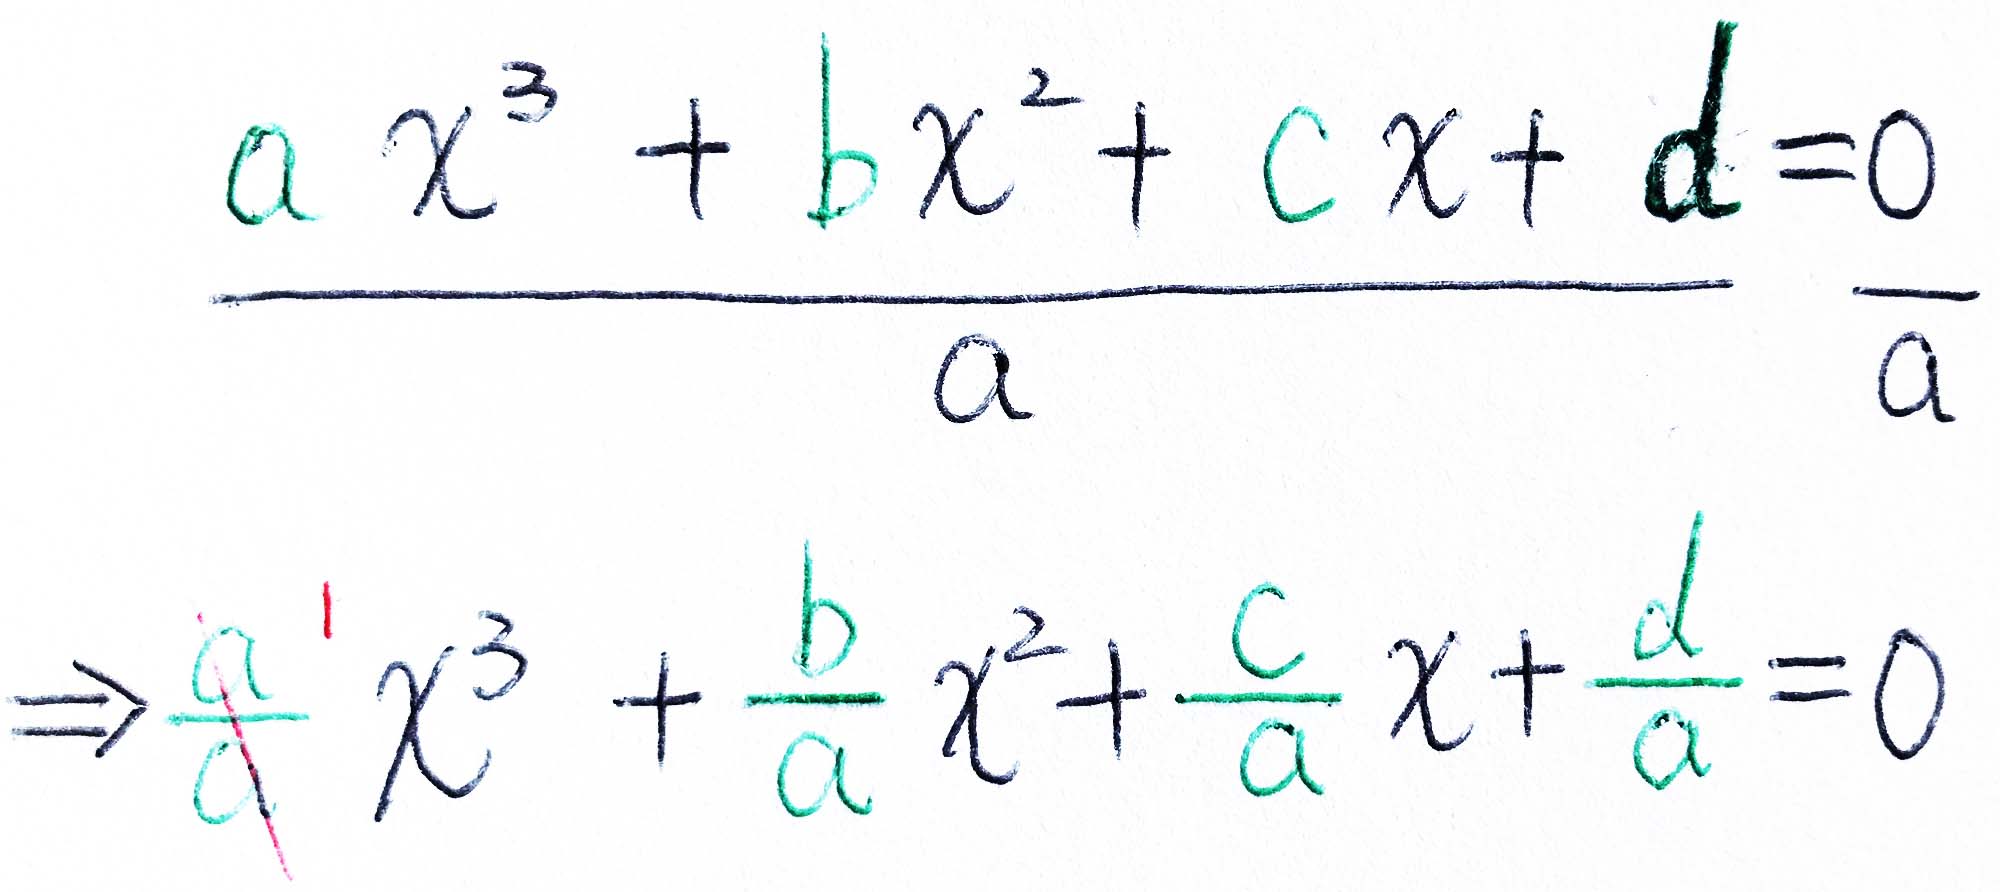 a x³ + b x² + c x + d = 0
a a
⇒ a/a 1 x³ + b/a x² + c/a x + d/a = 0